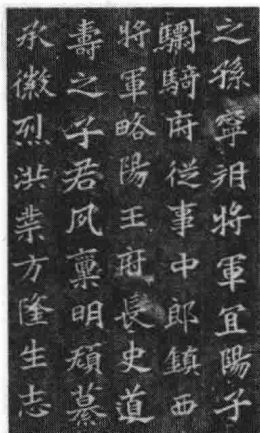 之孫寧朔將軍宜陽子
驃騎府從事中郎鎮西
將軍略陽王府長史道
壽之子君夙稟明頽慕
承徽烈洪業方隆生志